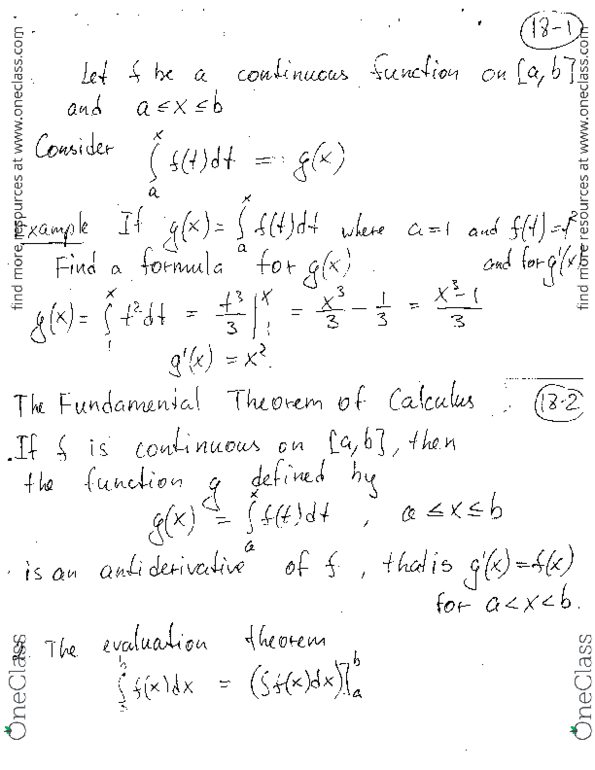 18-1
Let f be a continuous function on [a,b]
and a≤x≤b
Consider ∫_a^x f(t)dt = g(x)
Example If g(x)=∫_a^x f(t)dt where a=1 and f(t)=t²
Find a formula for g(x) and for g'(x)
g(x)= ∫_1^x t²dt = t³/3 |_1^x = x³/3 - 1/3 = x³-1/3
g'(x) = x².
The Fundamental Theorem of Calculus 18-2
If f is continuous on [a,b], then
the function g defined by
g(x) = ∫_a^x f(t)dt , a≤x≤b
is an antiderivative of f, that is g'(x)=f(x)
for a<x<b.
The evaluation theorem
∫_a^b f(x)dx = (∫f(x)dx)]_a^b
find more resources at www.oneclass.com
find more resources at www.oneclass.com
OneClass
OneClass